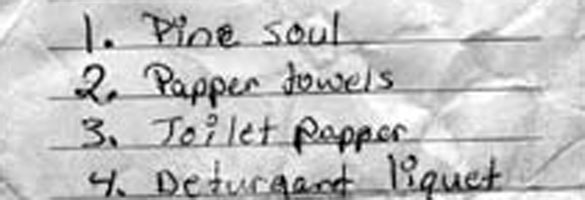 1. Pine soul
2. Papper towels
3. Toilet papper
4. Deturgant liquet